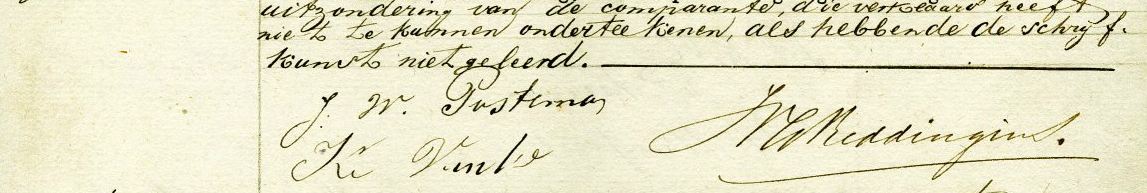 uitzondering van de comparante, die verklaard heeft
niet te kunnen onderteekenen, als hebbende de schrijf-
kunst niet geleerd.
J. W. Postema
K. Vinke
Reddingius.